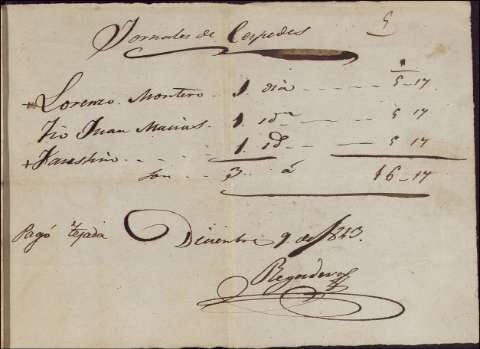 5
Jornales de Cespedes
+ Lorenzo Montero . 1 dia - - - - 5 - 17
Tio Juan Macias . 1 id - - - - 5 17
+ Faustino . . . . 1 id - - - 5 17
son 3 á 16 - 17
Pagó Tejada Diciembre 9 de 1843.